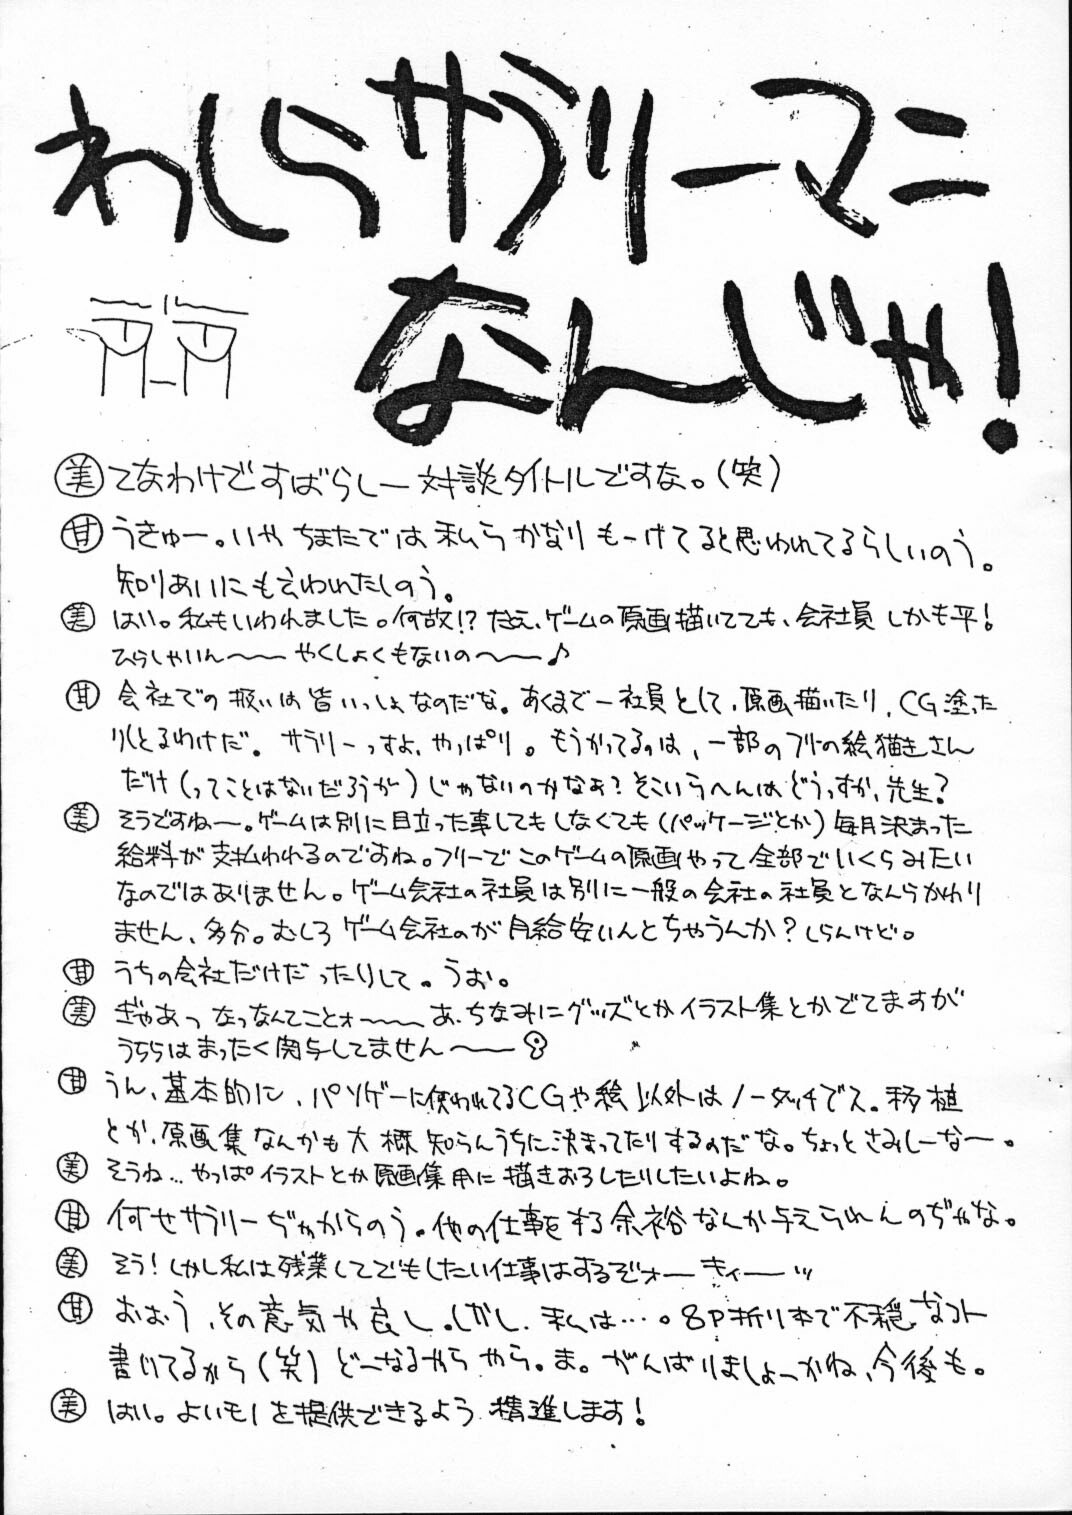 わしらサラリーマニ
なんじゃ!
美 てなわけですばらしー対談タイトルですな。(笑)
甘 うきゅー。いや ちまたでは私ら かなり もーけてると思われてるらしいのう。
知りあいにも言われたしのう。
美 はい。私もいわれました。何故!? たとえ、ゲームの原画描いてても、会社員 しかも平!
ひらしゃいん〜〜 やくしょくもないの〜〜♪
甘 会社での扱いは皆いっしょなのだな。あくまで一社員として、原画描いたり、CG塗った
りしとるわけだ。サラリーっすよ、やっぱり。もうかってるのは、一部のフリーの絵描きさん
だけ(ってことはないだろうが)じゃないのかなぁ?そこいらへんはどうっすか、先生?
美 そうですね〜。ゲームは別に目立った事してもしなくても(パッケージとか)毎月決まった
給料が支払われるのですね。フリーでこのゲームの原画やって全部でいくらみたい
なのではありません。ゲーム会社の社員は別に一般の会社の社員となんらかわり
ません、多分。むしろゲーム会社のが月給安いんとちゃうんか?しらんけど。
甘 うちの会社だけだったりして。うお。
美 ぎゃあっ なっなんてことォ〜〜 あ、ちなみにグッズとかイラスト集とかでてますが
うちらはまったく関与してません〜〜
甘 うん、基本的に、パソゲーに使われてるCGや絵以外はノータッチでス。移植
とか、原画集なんかも大概知らんうちに決まってたりするのだな。ちょっとさみしーなー。
美 そうね…やっぱイラストとか原画集用に描きおろしたりしたいよね。
甘 何せサラリーぢゃからのう。他の仕事をする余裕なんか与えられんのぢゃな。
美 そう!しかし私は残業してでもしたい仕事はするぞォー キィーーッ
甘 おおう、その意気や良し。しかし、私は…。8P折り本で不穏なコト
書いてるから(笑)どーなるやらやら。ま。がんばりましょーかね、今後も。
美 はい。よいモノを提供できるよう 精進します!